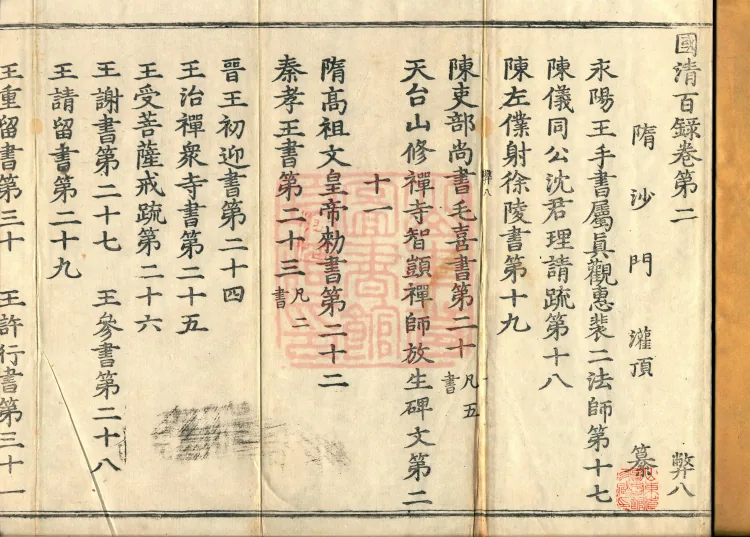 國清百錄卷第二 弊八
隋沙門 灌頂 纂
永陽王手書屬眞觀惠裴二法師第十七
陳儀同公沈君理請疏第十八
陳左僕射徐陵書第十九
弊八
陳吏部尚書毛喜書第二十 凡五書
天台山修禪寺智顗禪師放生碑文第二
十一
隋高祖文皇帝勑書第二十二
秦孝王書第二十三 凡二書
晉王初迎書第二十四
王治禪衆寺書第二十五
王受菩薩戒疏第二十六
王謝書第二十七 王參書第二十八
王請留書第二十九
王重留書第三十 王許行書第三十一